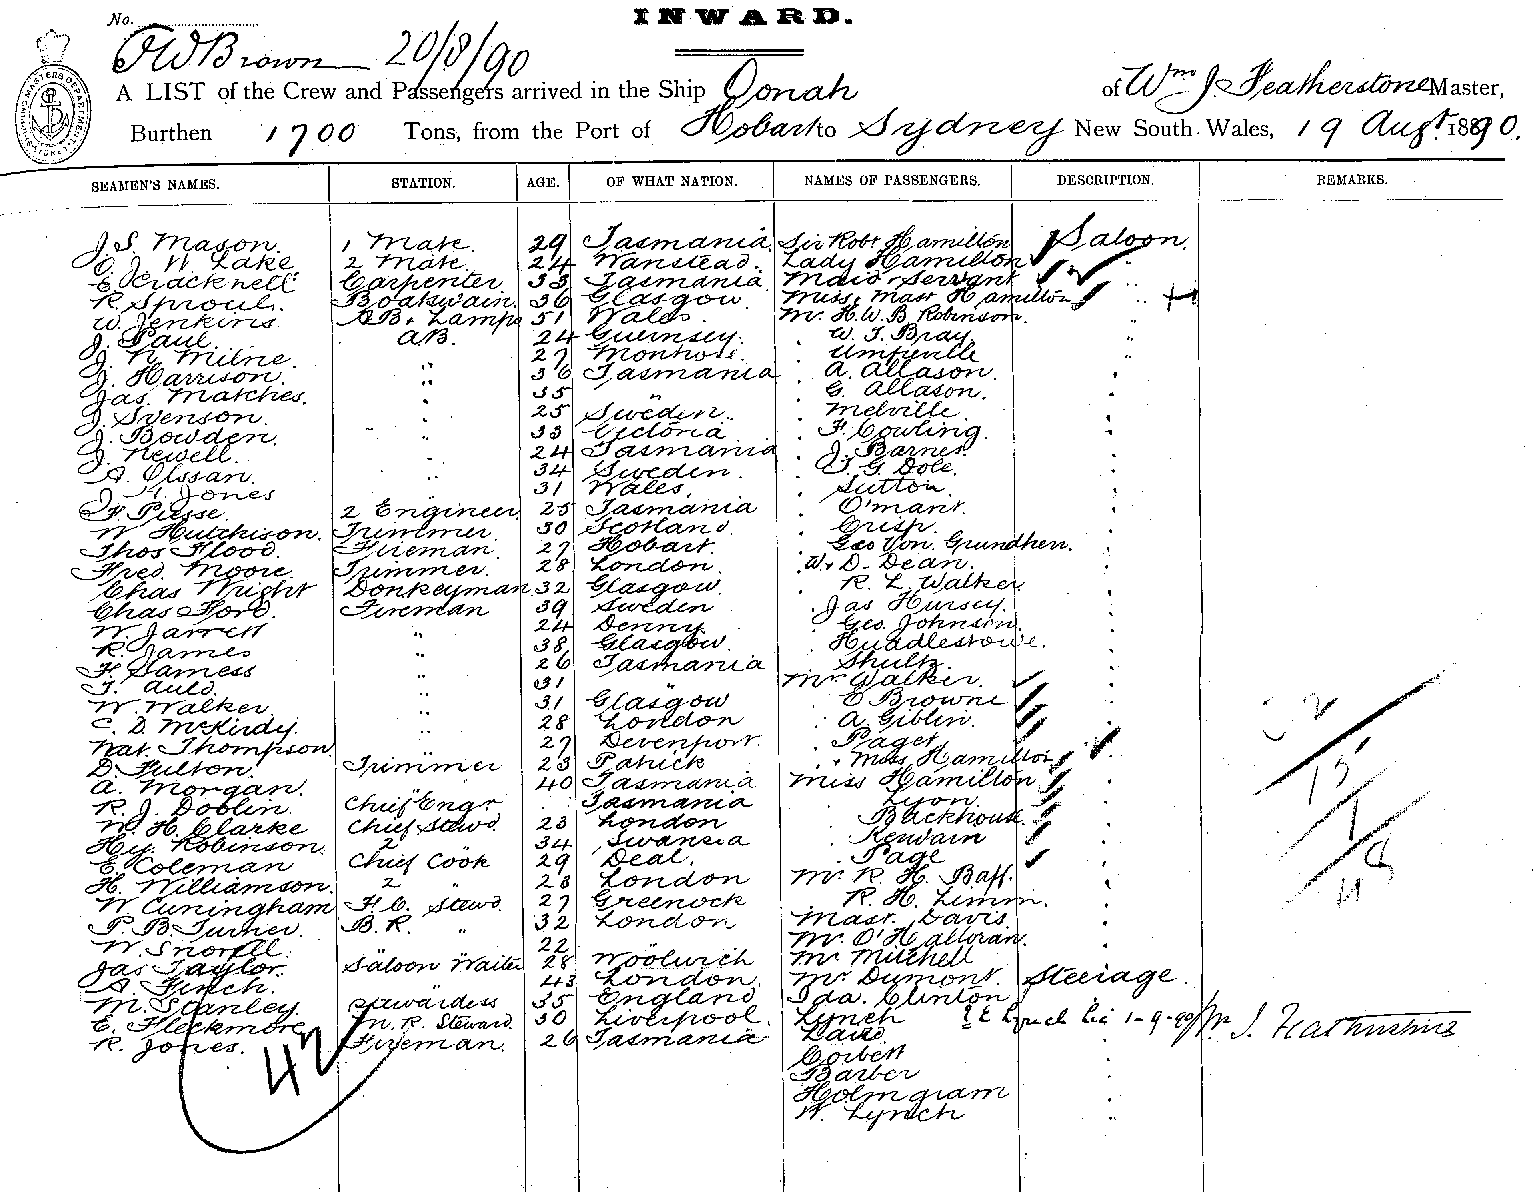 No.
INWARD.
F W Brown 20/8/90
A LIST of the Crew and Passengers arrived in the Ship Oonah of Wm J. Featherstone Master,
Burthen 1700 Tons, from the Port of Hobart to Sydney New South Wales, 19 Augt. 1890.
SEAMEN'S NAMES. STATION. AGE. OF WHAT NATION. NAMES OF PASSENGERS. DESCRIPTION. REMARKS.
J. S. Mason. 1 Mate. 29 Tasmania. Sir Robt Hamilton Saloon.
C. J. W. Lake 2 Mate. 24 Wanstead. Lady Hamilton "
E. Cracknell Carpenter. 33 Tasmania Maid Servant
R. Sproul. Boatswain. 36 Glasgow Miss, Mast Hamilton "
W. Jenkins. AB & Lamps 51 Wales. Mr. H. W. B. Robinson. "
J. Paul. AB. 24 Guernsey. " W. J. Bray "
J. N. Milne. " 27 Montrose. " Umfreville "
J. Harrison. " 36 Tasmania " A. Allason. "
Jas. Matches. " 35 " " G. Allason. "
J. Svenson. " 25 Sweden. " Melville. "
J. Bowden. " 33 Victoria " F. Cowling. "
J. Newell. " 24 Tasmania " J. Barnes "
A. Olssan. " 34 Sweden. " T. G. Dole. "
J. H. Jones " 31 Wales. " Sutton. "
F. Piesse. 2 Engineer 25 Tasmania " O'mant. "
W. Hutchison. Trimmer. 30 Scotland " Crisp. "
Thos Flood. Fireman. 27 Hobart. " Geo Von. Grundherr. "
Fred. Moore Trimmer. 28 London. " W. D. Dean. "
Chas Wright Donkeyman 32 Glasgow. " R. L. Walker "
Chas Ford. Fireman 39 Sweden " Jas Hursey. "
W. Jarrett " 24 Denny " Geo. Johnson. "
R. James " 38 Glasgow. " Huddlestowe. "
F. Samess " 26 Tasmania " Shultz. "
T. Auld. " 31 " Mrs Walker. "
W. Walker " 31 Glasgow " E Browne "
C. D. McKirdy. " 28 London " A. Giblin. "
Nat. Thompson " 27 Devenport. " Paget "
D. Fulton. Trimmer 23 Patrick " Miss Hamilton "
A. Morgan. " 40 Tasmania Miss Hamilton "
R. J. Doblin. Chief Engr. Tasmania Lyon. "
W. H. Clarke Chief Stewd. 23 London Backhouse. "
Hy. Robinson. 2 " 34 Swansea Kerwain "
E. Coleman Chief Cook 29 Deal. Page "
H. Williamson. 2 " 28 London Mr. R. H. Baff. "
W Cuningham F. C. Stewd. 27 Greenock R. H. Limm. "
P. B. Turner. B. R. " 32 London Mast. Davis. "
W. Snorell. " 22 " Mr. O'Halloran. "
Jas Taylor. Saloon Waiter 28 Woolwich Mr Mitchell "
A. Finch. " 43 London. Mr Dumont. Steerage.
M. Stanley. Stewardess 35 England Ida. Clinton "
E. Fleckmore M. R. Steward. 30 Liverpool. Lynch E Lynch 1-9-90 Wm. J. Featherstone
R. Jones. Fireman. 26 Tasmania
Corbett
Barber "
Holmgram "
W. Lynch "
42